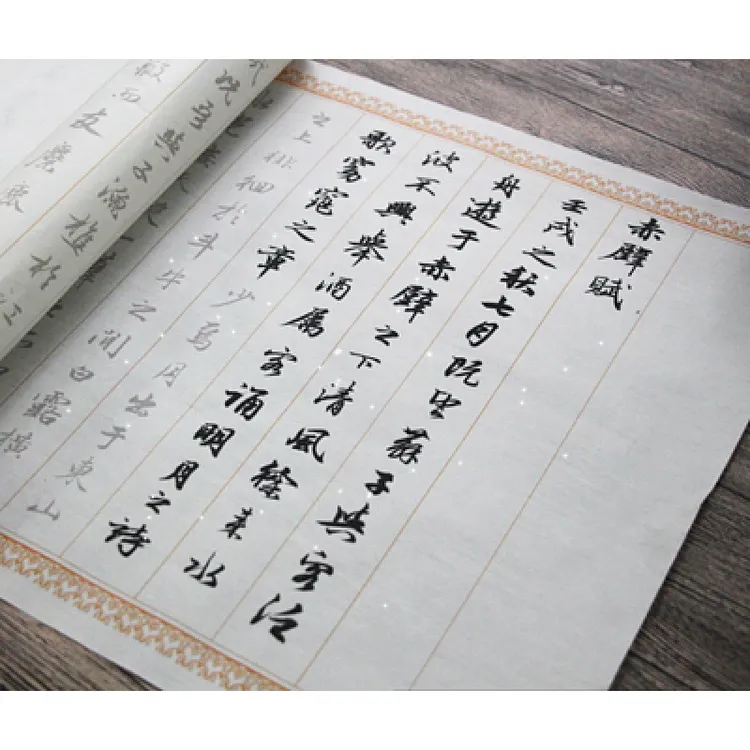 赤壁賦
壬戌之秋七月既望蘇子與客泛
舟遊于赤壁之下清風徐來水
波不興舉酒屬客誦明月之詩
歌窈窕之章少焉月出于東山
之上徘徊於斗牛之間白露橫
況吾與子漁樵於江
蝦而友麋鹿